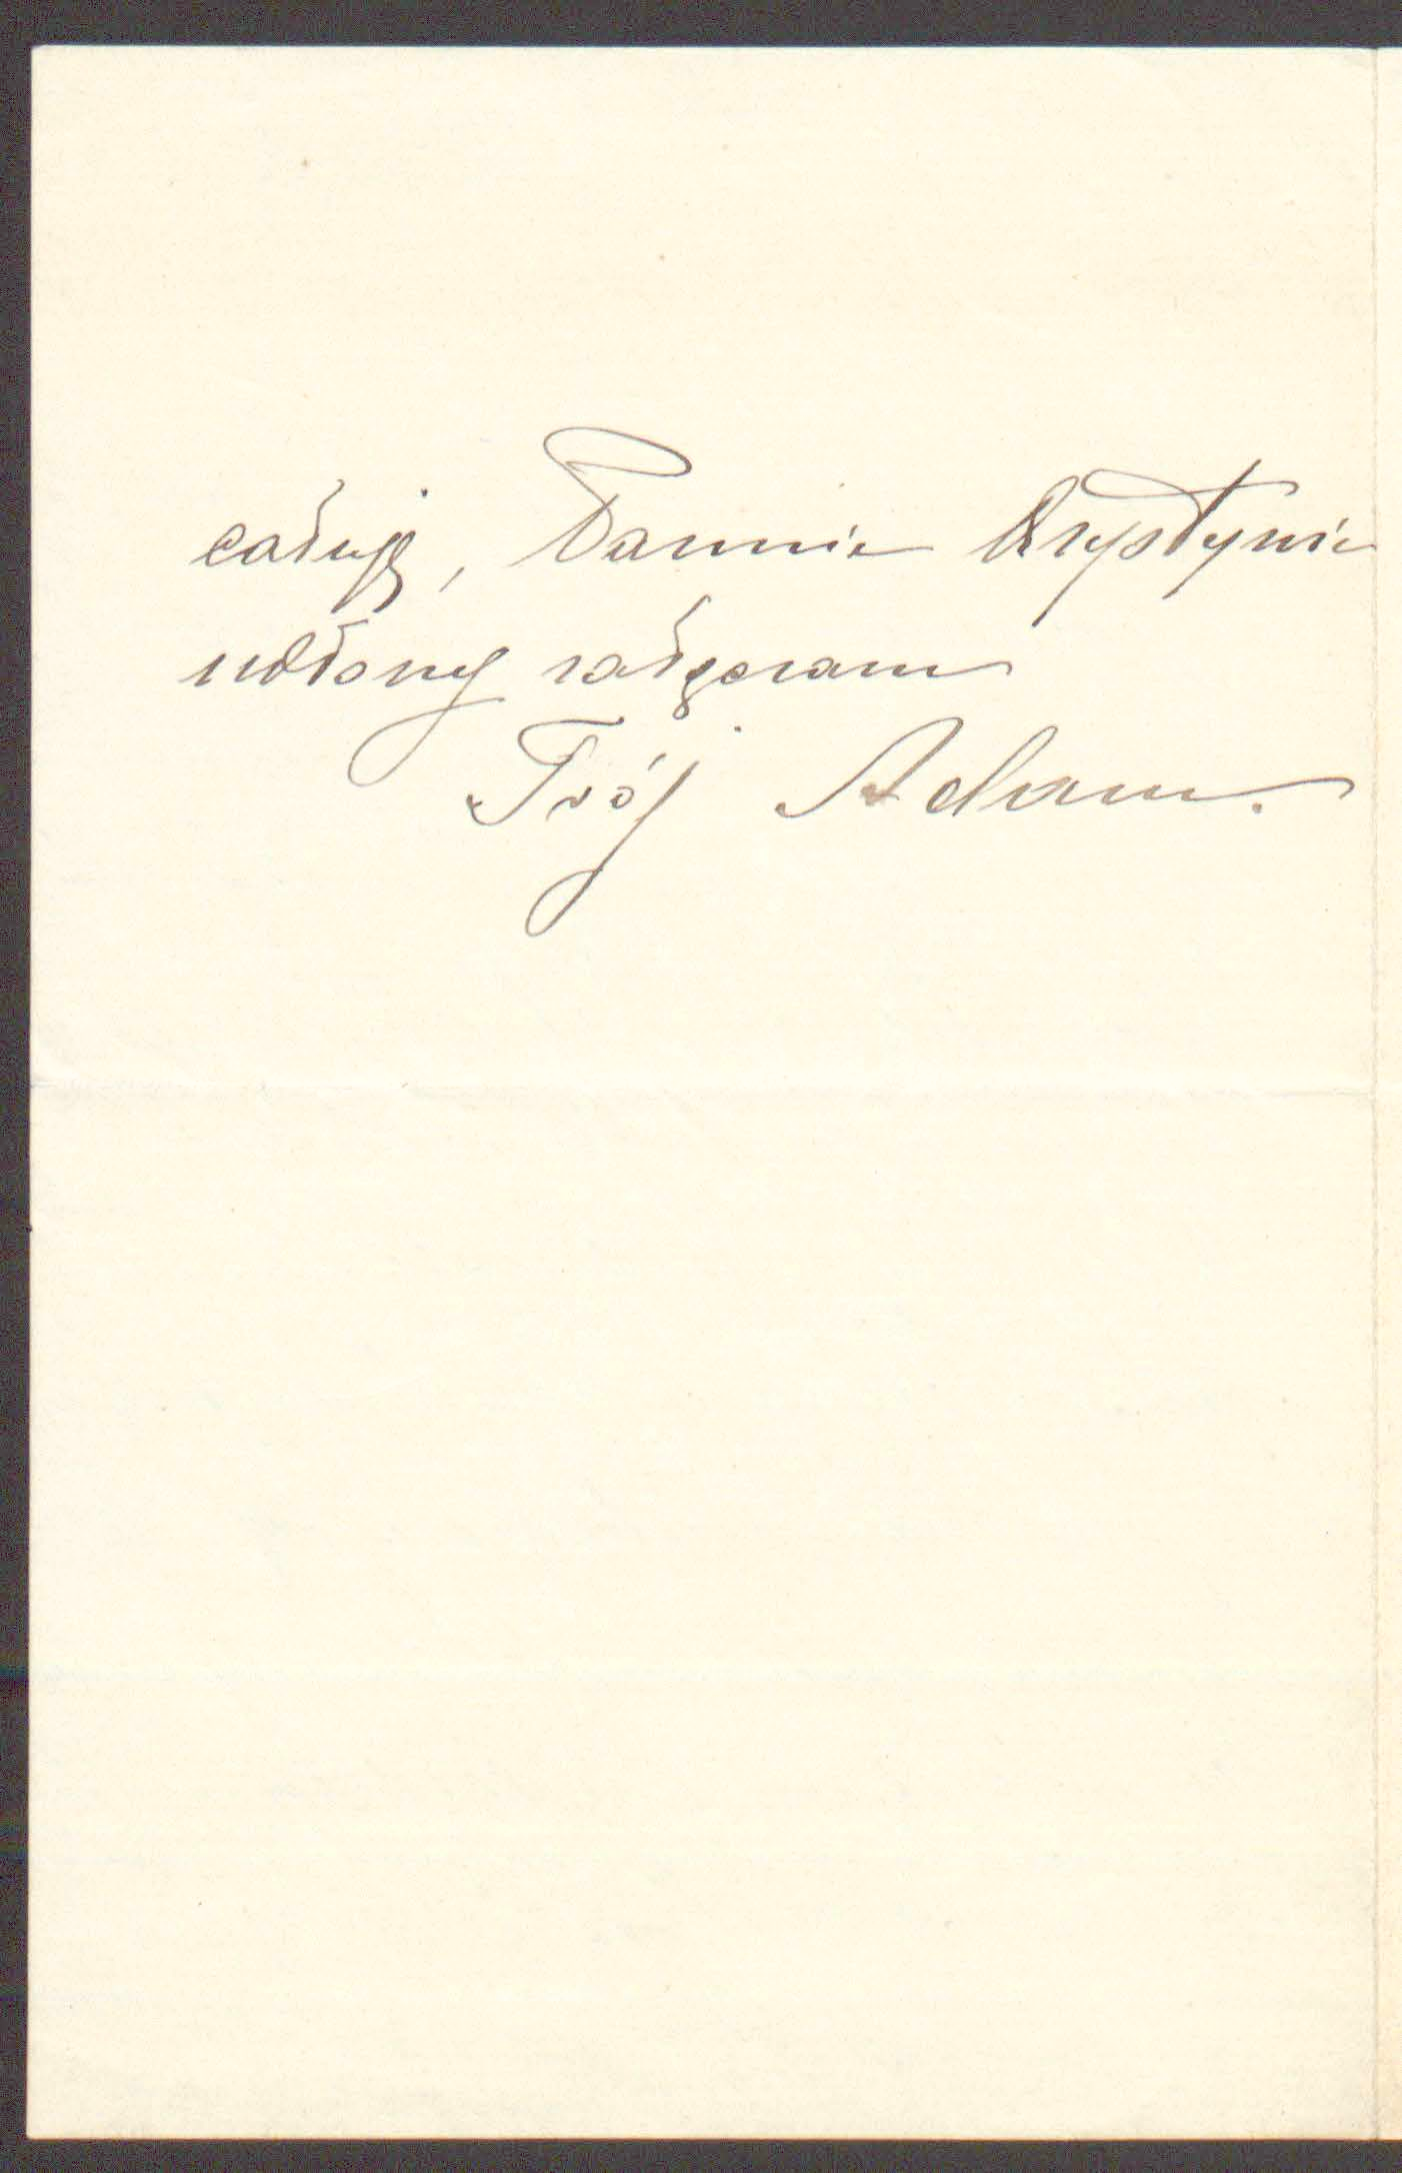 całuję, Pannie Krystynie
ukłony załączam
Twój Adam.